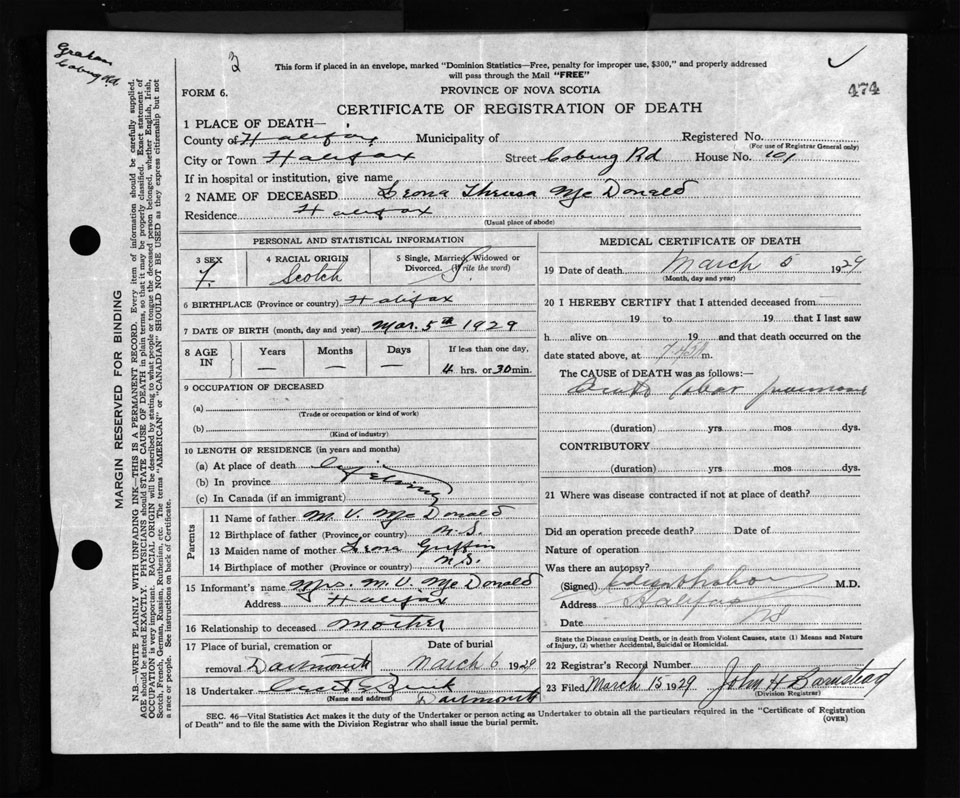 Graham
Coburg Rd.
2
474
This form if placed in an envelope, marked "Dominion Statistics—Free, penalty for improper use, $300," and properly addressed
will pass through the Mail "FREE"
FORM 6.
PROVINCE OF NOVA SCOTIA
CERTIFICATE OF REGISTRATION OF DEATH
1 PLACE OF DEATH—
County of Halifax Municipality of Registered No.
(For use of Registrar General only)
City or Town Halifax Street Coburg Rd House No. 101
If in hospital or institution, give name
2 NAME OF DECEASED Leona Theresa McDonald
Residence Halifax
(Usual place of abode)
MARGIN RESERVED FOR BINDING
N.B.—WRITE PLAINLY WITH UNFADING INK—THIS IS A PERMANENT RECORD. Every item of information should be carefully supplied.
AGE should be stated EXACTLY. PHYSICIANS should STATE CAUSE OF DEATH in plain terms, so that it may be properly classified. Exact statement of
OCCUPATION is very important. RACIAL ORIGIN will be described by stating to what people or tongue the deceased person belonged, whether English, Irish,
Scotch, French, German, Russian, Ruthenian, etc. The terms "AMERICAN" or "CANADIAN" SHOULD NOT BE USED as they express citizenship but not
a race or people. See instructions on back of Certificate.
PERSONAL AND STATISTICAL INFORMATION
3 SEX
F.
4 RACIAL ORIGIN
Scotch
5 Single, Married, Widowed or
Divorced. (Write the word)
S.
6 BIRTHPLACE (Province or country) Halifax
7 DATE OF BIRTH (month, day and year) Mar. 5th 1929
8 AGE IN
Years
—
Months
—
Days
—
If less than one day,
4 hrs. or 30 min.
9 OCCUPATION OF DECEASED
(a)
(Trade or occupation or kind of work)
(b)
(Kind of industry)
10 LENGTH OF RESIDENCE (in years and months)
(a) At place of death
(b) In province
(c) In Canada (if an immigrant)
Parents
11 Name of father M. V. McDonald
12 Birthplace of father (Province or country) N.S.
13 Maiden name of mother Leona Griffin
14 Birthplace of mother (Province or country) N.S.
15 Informant's name Mrs. M. V. McDonald
Address Halifax
16 Relationship to deceased Mother
17 Place of burial, cremation or
removal Dartmouth
Date of burial
March 6 1929
18 Undertaker
(Name and address) Dartmouth
MEDICAL CERTIFICATE OF DEATH
19 Date of death March 5 1929
(Month, day and year)
20 I HEREBY CERTIFY that I attended deceased from
19 to 19 that I last saw
h alive on 19 and that death occurred on the
date stated above, at m.
The CAUSE of DEATH was as follows:—
lobar pneumonia
(duration) yrs. mos dys.
CONTRIBUTORY
(duration) yrs. mos. dys.
21 Where was disease contracted if not at place of death?
Did an operation precede death? Date of
Nature of operation
Was there an autopsy?
(Signed) M.D.
Address Halifax
Date NS
State the Disease causing Death, or in death from Violent Causes, state (1) Means and Nature
of Injury, (2) whether Accidental, Suicidal or Homicidal.
22 Registrar's Record Number
23 Filed March 15 1929 John H Barnstead
(Division Registrar)
SEC. 46—Vital Statistics Act makes it the duty of the Undertaker or person acting as Undertaker to obtain all the particulars required in the "Certificate of Registration
of Death" and to file the same with the Division Registrar who shall issue the burial permit.
(OVER)